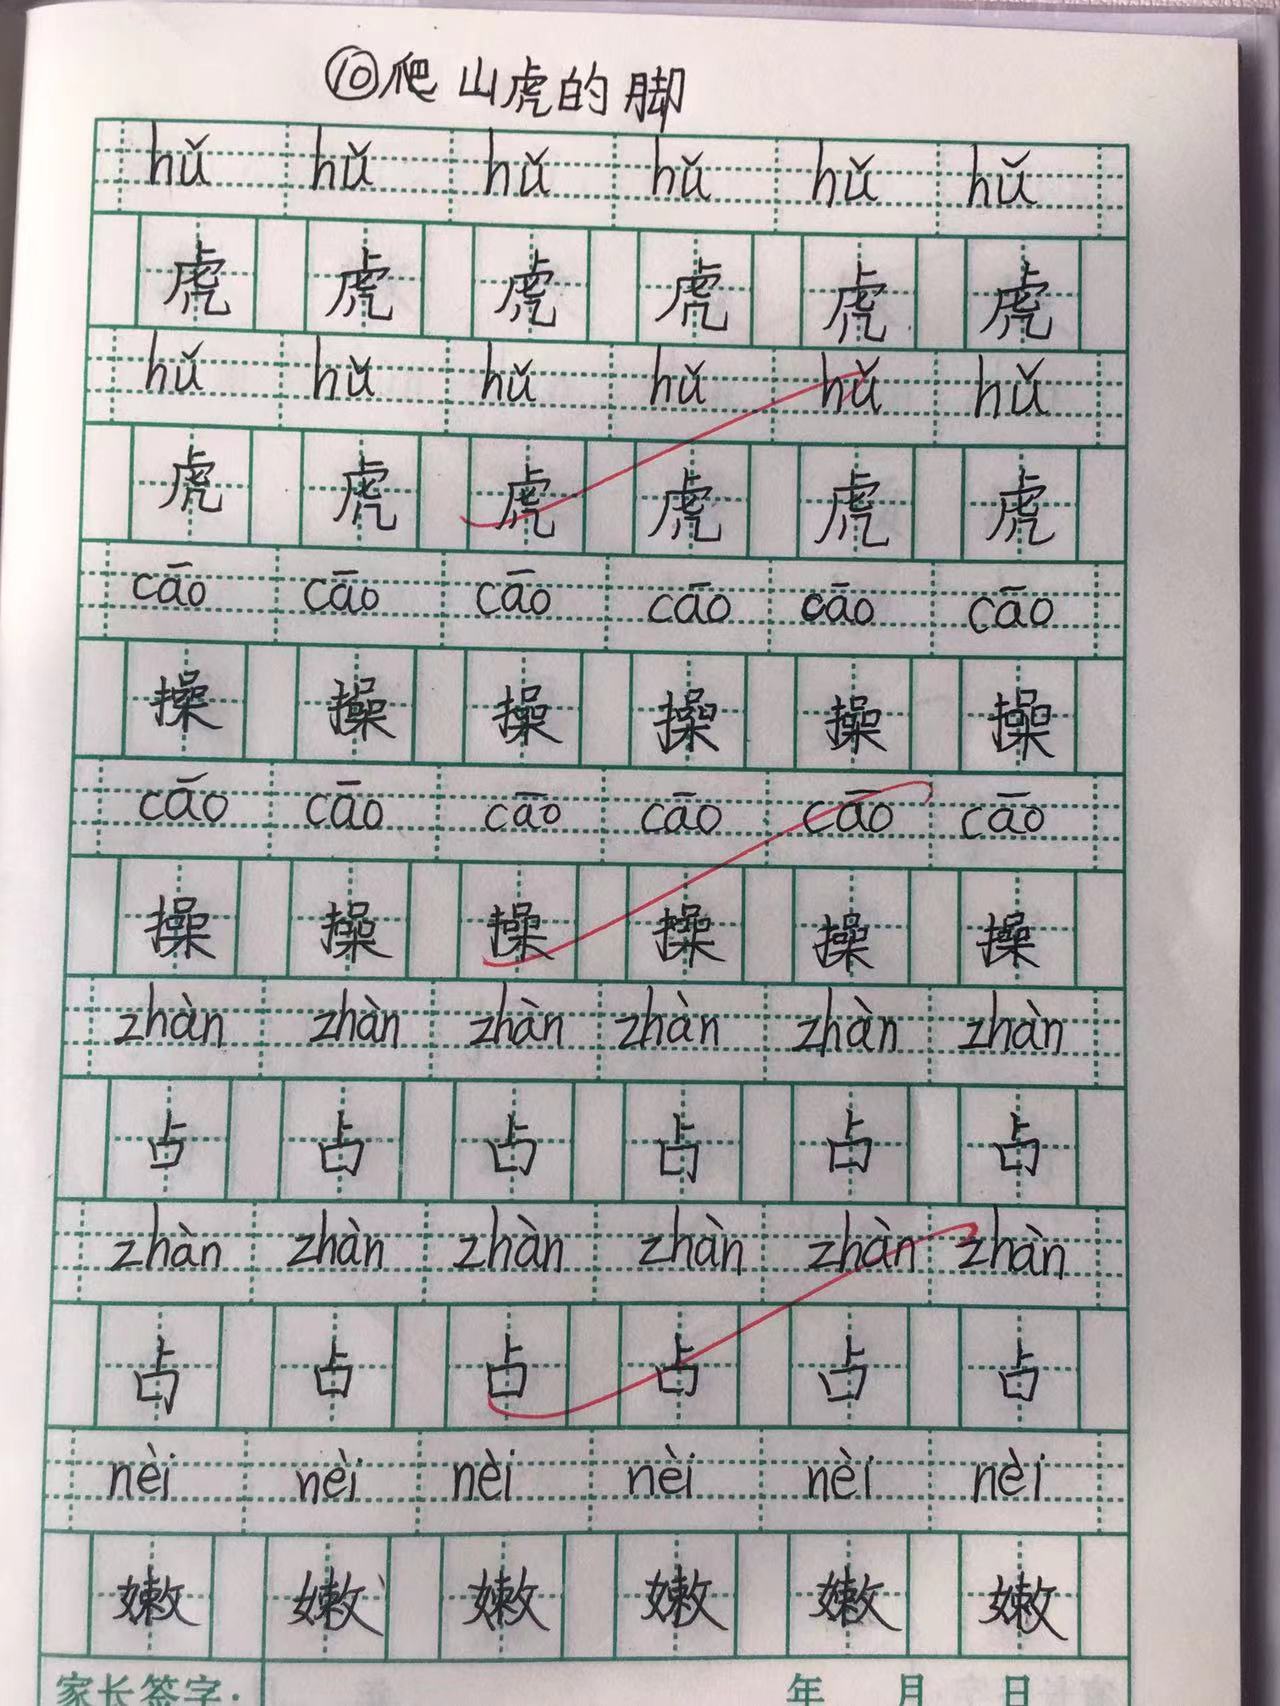 ⑩爬山虎的脚
hǔ hǔ hǔ hǔ hǔ hǔ
虎 虎 虎 虎 虎 虎
hǔ hǔ hǔ hǔ hǔ hǔ
虎 虎 虎 虎 虎 虎
cāo cāo cāo cāo cāo cāo
操 操 操 操 操 操
cāo cāo cāo cāo cāo cāo
操 操 操 操 操 操
zhàn zhàn zhàn zhàn zhàn zhàn
占 占 占 占 占 占
zhàn zhàn zhàn zhàn zhàn zhàn
占 占 占 占 占 占
nèi nèi nèi nèi nèi nèi
嫩 嫩 嫩 嫩 嫩 嫩
家长签字: 年 月 日